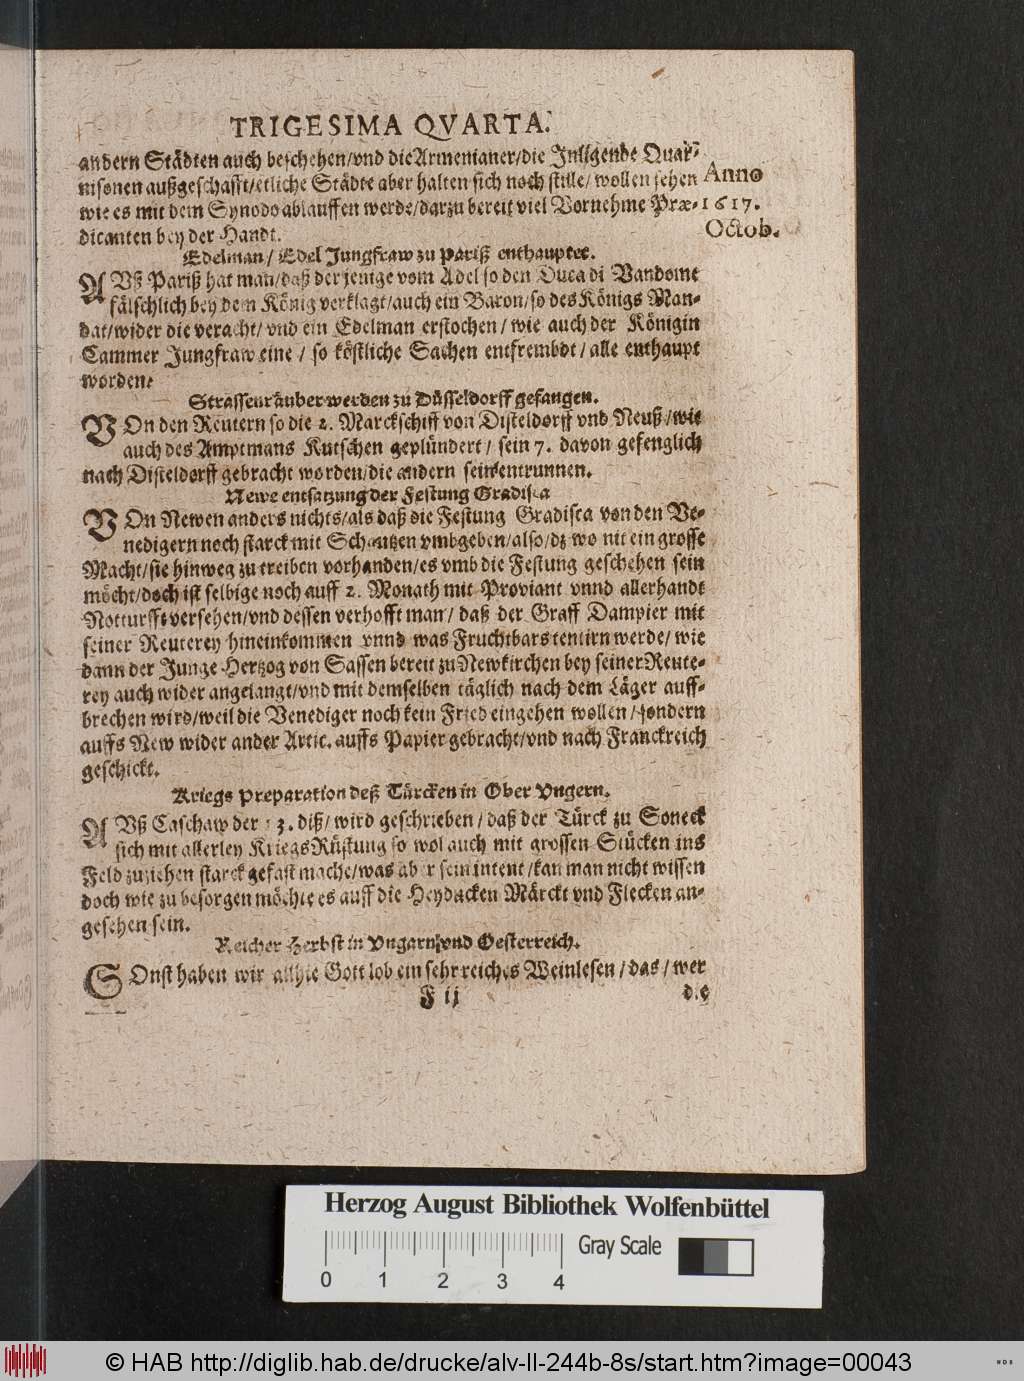 TRIGESIMA QVARTA.
andern Städten auch beschehen/vnd die Armenianer/die Inligende Quar-
nisonen außgeschafft/etliche Städte aber halten sich noch stille/wollen sehen
wie es mit dem Synodo ablauffen werde/darzu bereit viel Vornehme Præ-
dicanten bey der Handt.
Anno
1617.
Octob.
Edelman/Edel Jungfraw zu Pariß enthauptet.
AVß Pariß hat man/daß der jenige vom Adel so den Duca di Vandome
fälschlich bey dem König verklagt/auch ein Baron/so des Königs Man-
dat/wider die veracht/vnd ein Edelman erstochen/wie auch der Königin
Cammer Jungfraw eine/so köstliche Sachen entfrembdt/alle enthaupt
worden.
Strassenräuber werden zu Düsseldorff gefangen.
VOn den Reutern so die 2. Marckschiff von Disteldorff vnd Neuß/wie
auch des Amptmans Kutschen geplündert/sein 7. davon gefenglich
nach Disteldorff gebracht worden/die andern sein entrunnen.
Newe entsatzung der Festung Gradisca
VOn Newen anders nichts/als daß die Festung Gradisca von den Ve-
nedigern noch starck mit Schantzen vmbgeben/also/dz wo nit ein grosse
Macht/sie hinweg zu treiben vorhanden/es vmb die Festung geschehen sein
möcht/doch ist selbige noch auff 2. Monath mit Proviant vnnd allerhandt
Notturfft versehen/vnd dessen verhofft man/daß der Graff Dampier mit
seiner Reuterey hineinkommen vnnd was Fruchtbars tentirn werde/wie
dann der Junge Hertzog von Sassen bereit zu Newkirchen bey seiner Reute-
rey auch wider angelangt/vnd mit demselben täglich nach dem Läger auff-
brechen wird/weil die Venediger noch kein Fried eingehen wollen/sondern
auffs New wider ander Artic. auffs Papier gebracht/vnd nach Franckreich
geschickt.
Kriegs Preparation deß Türcken in Ober Vngern.
AVß Caschaw der 13. diß/wird geschrieben/daß der Türck zu Soneck
sich mit allerley KriegsRüstung so wol auch mit grossen Stücken ins
Feld zuziehen starck gefast mache/was aber sein intent/kan man nicht wissen
doch wie zu besorgen möchte es auff die Heyducken Märckt vnd Flecken an-
gesehen sein.
Reicher Herbst in Vngarn vnd Oesterreich.
SOnst haben wir allhie Gott lob ein sehr reiches Weinlesen/das/wer
F ij
de
Herzog August Bibliothek Wolfenbüttel
Gray Scale
0 1 2 3 4
© HAB http://diglib.hab.de/drucke/alv-ll-244b-8s/start.htm?image=00043